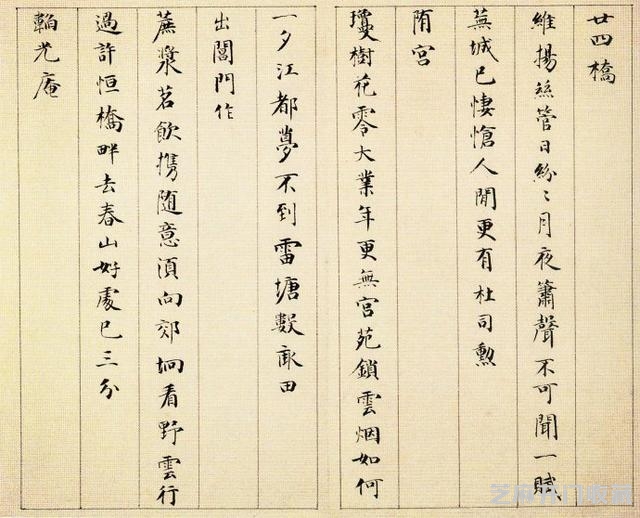 廿四橋
維揚絲管日紛〻月夜簫聲不可聞一賦
蕪城已悽愴人閒更有杜司勲
隋宫
瓊樹花零大業年更無宫苑鎖雲烟如何
一夕江都夢不到雷塘數畝田
出閶門作
蔗漿茗飲携随意湏向郊坰看野雲行
過許恒橋畔去春山好處已三分
韜光庵